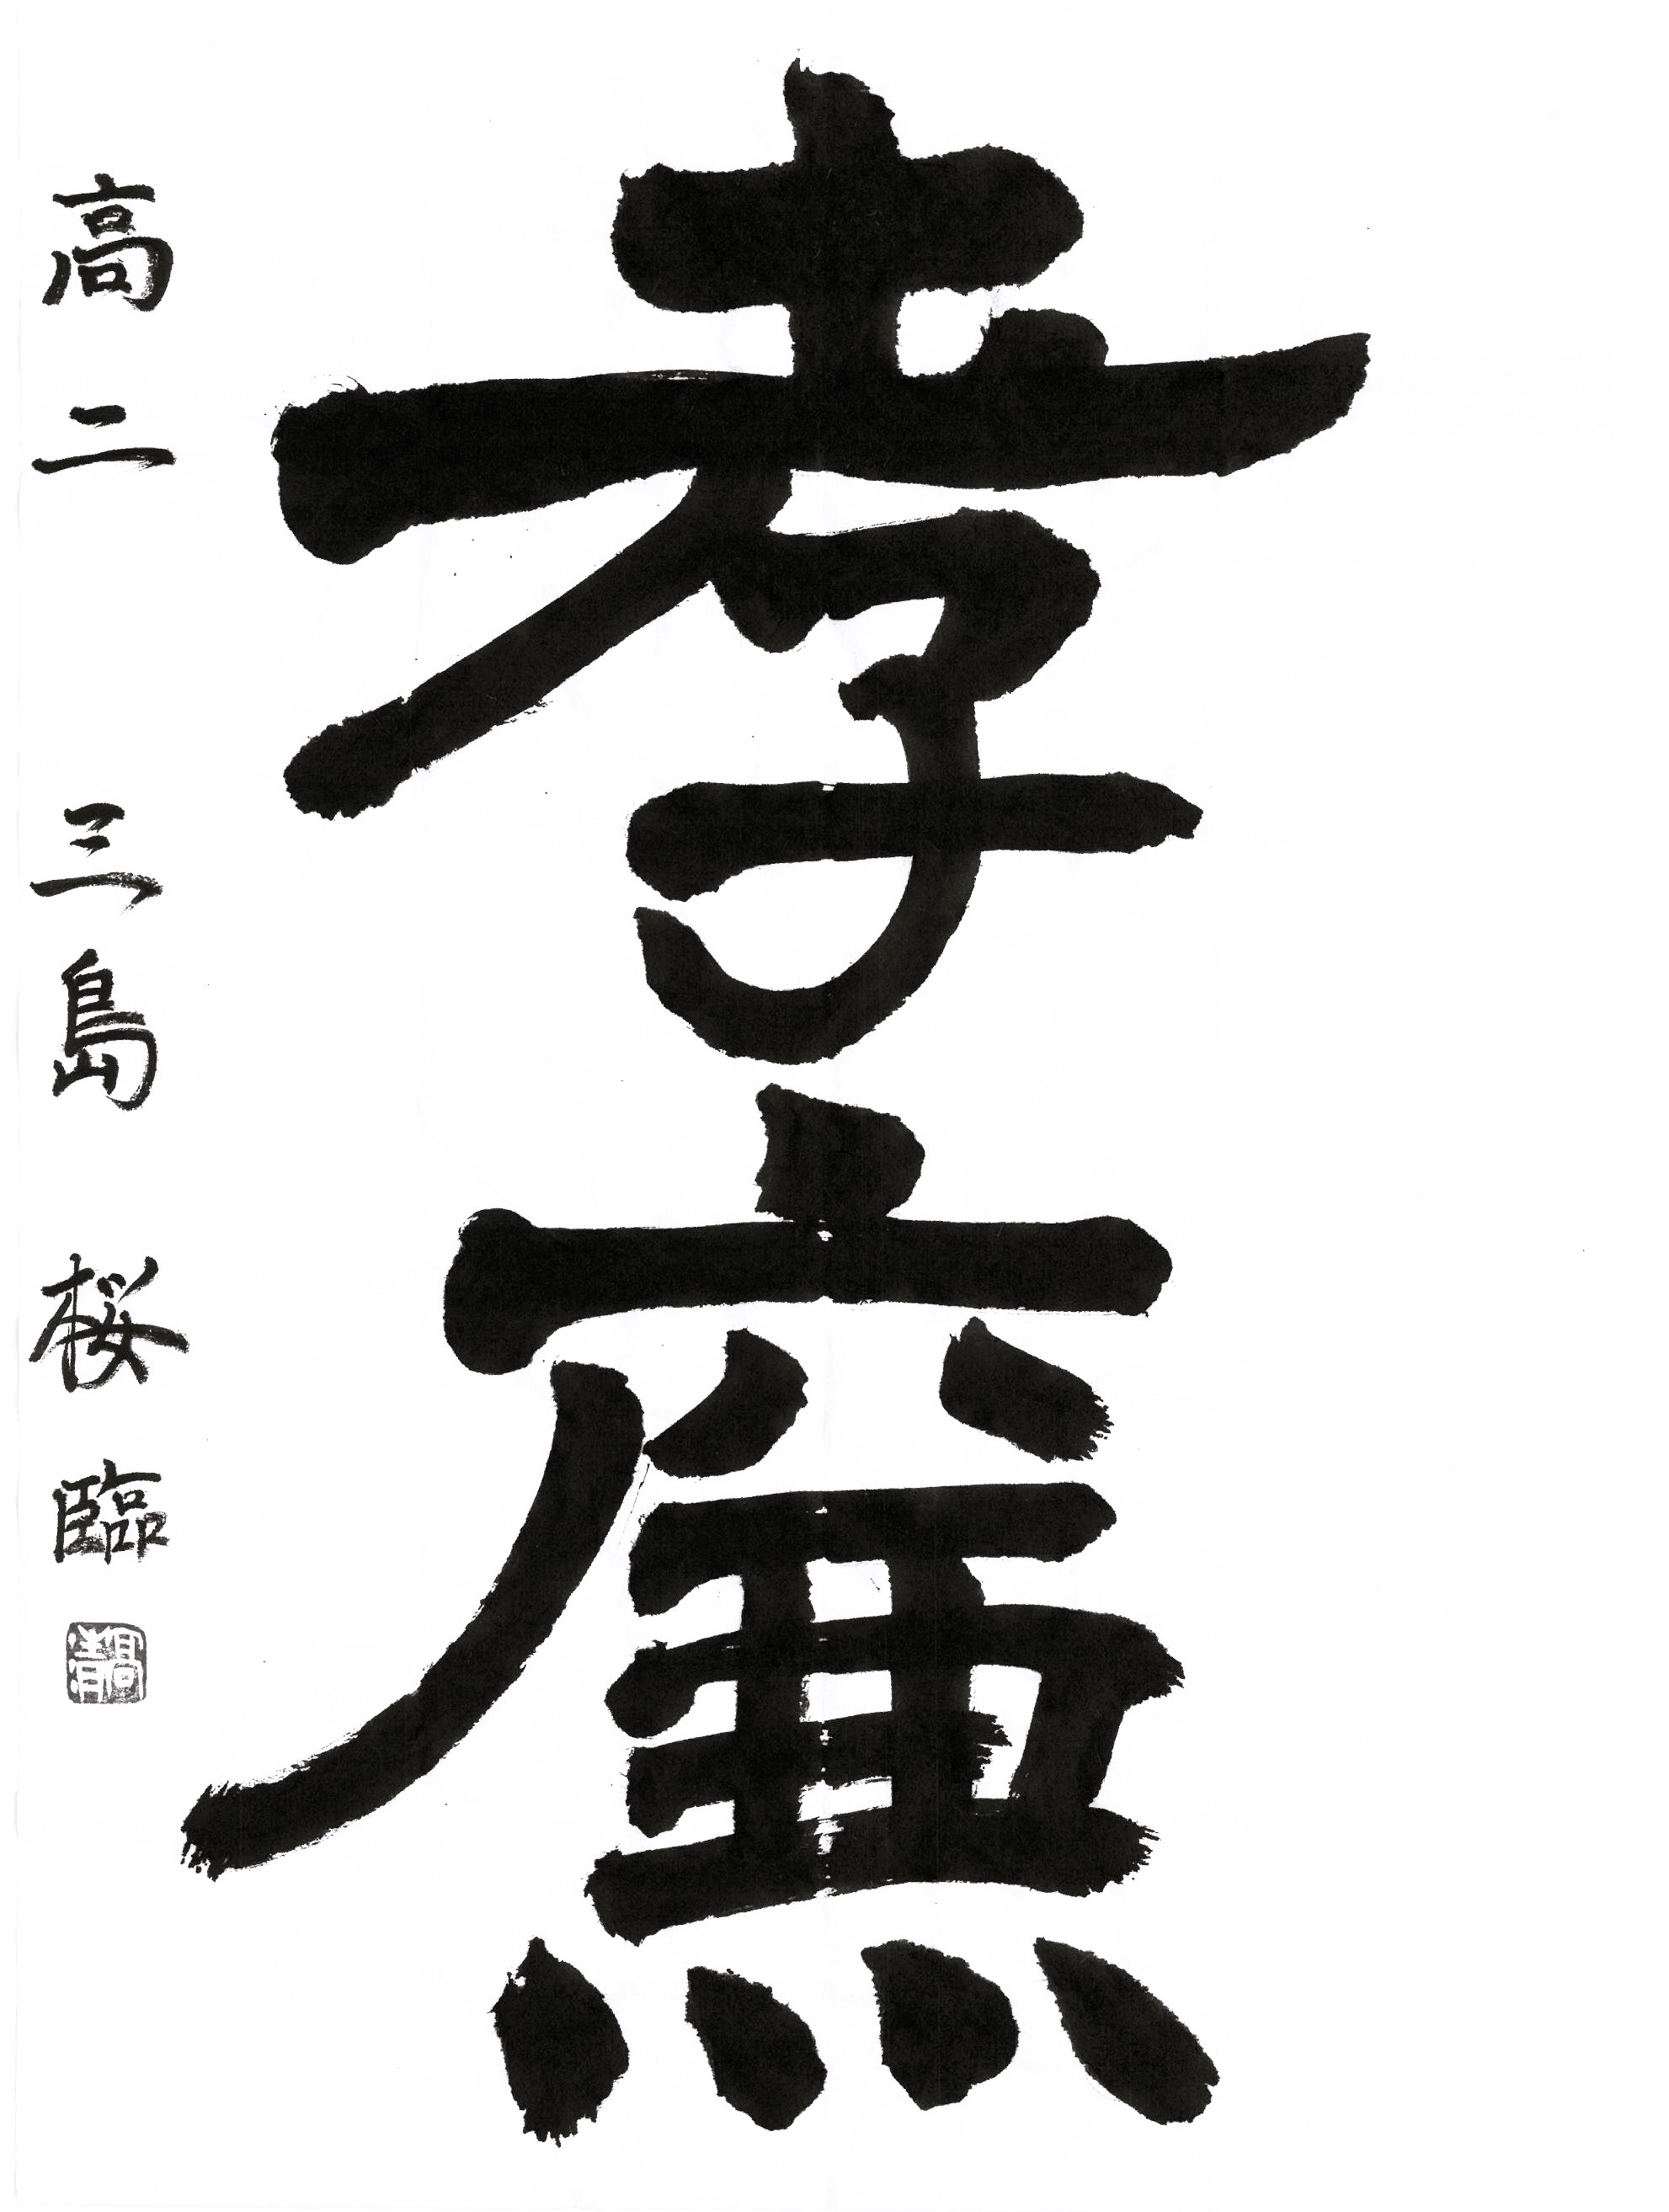 孝廉
高二 三島 桜 臨